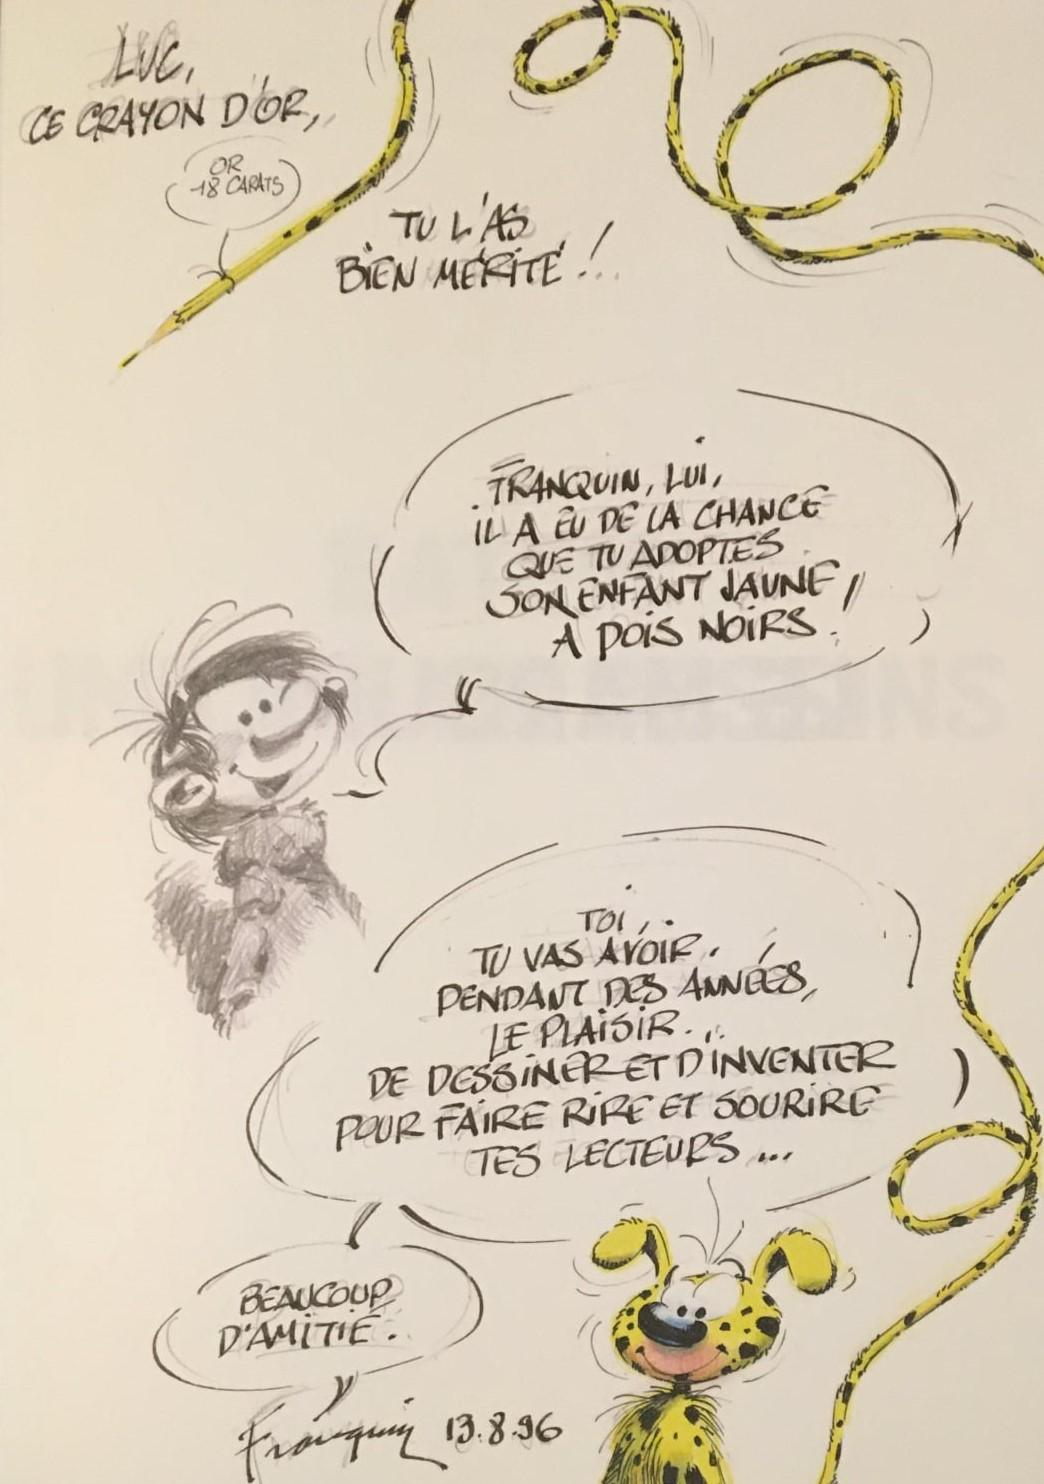 LUC,
CE CRAYON D'OR,
OR
18 CARATS
TU L'AS
BIEN MÉRITÉ !..
FRANQUIN, LUI,
IL A EU DE LA CHANCE
QUE TU ADOPTES
SON ENFANT JAUNE,
A POIS NOIRS.
TOI,
TU VAS AVOIR
PENDANT DES ANNÉES,
LE PLAISIR...
DE DESSINER ET D'INVENTER
POUR FAIRE RIRE ET SOURIRE
TES LECTEURS ...
BEAUCOUP
D'AMITIÉ.
Franquin 13.8.96